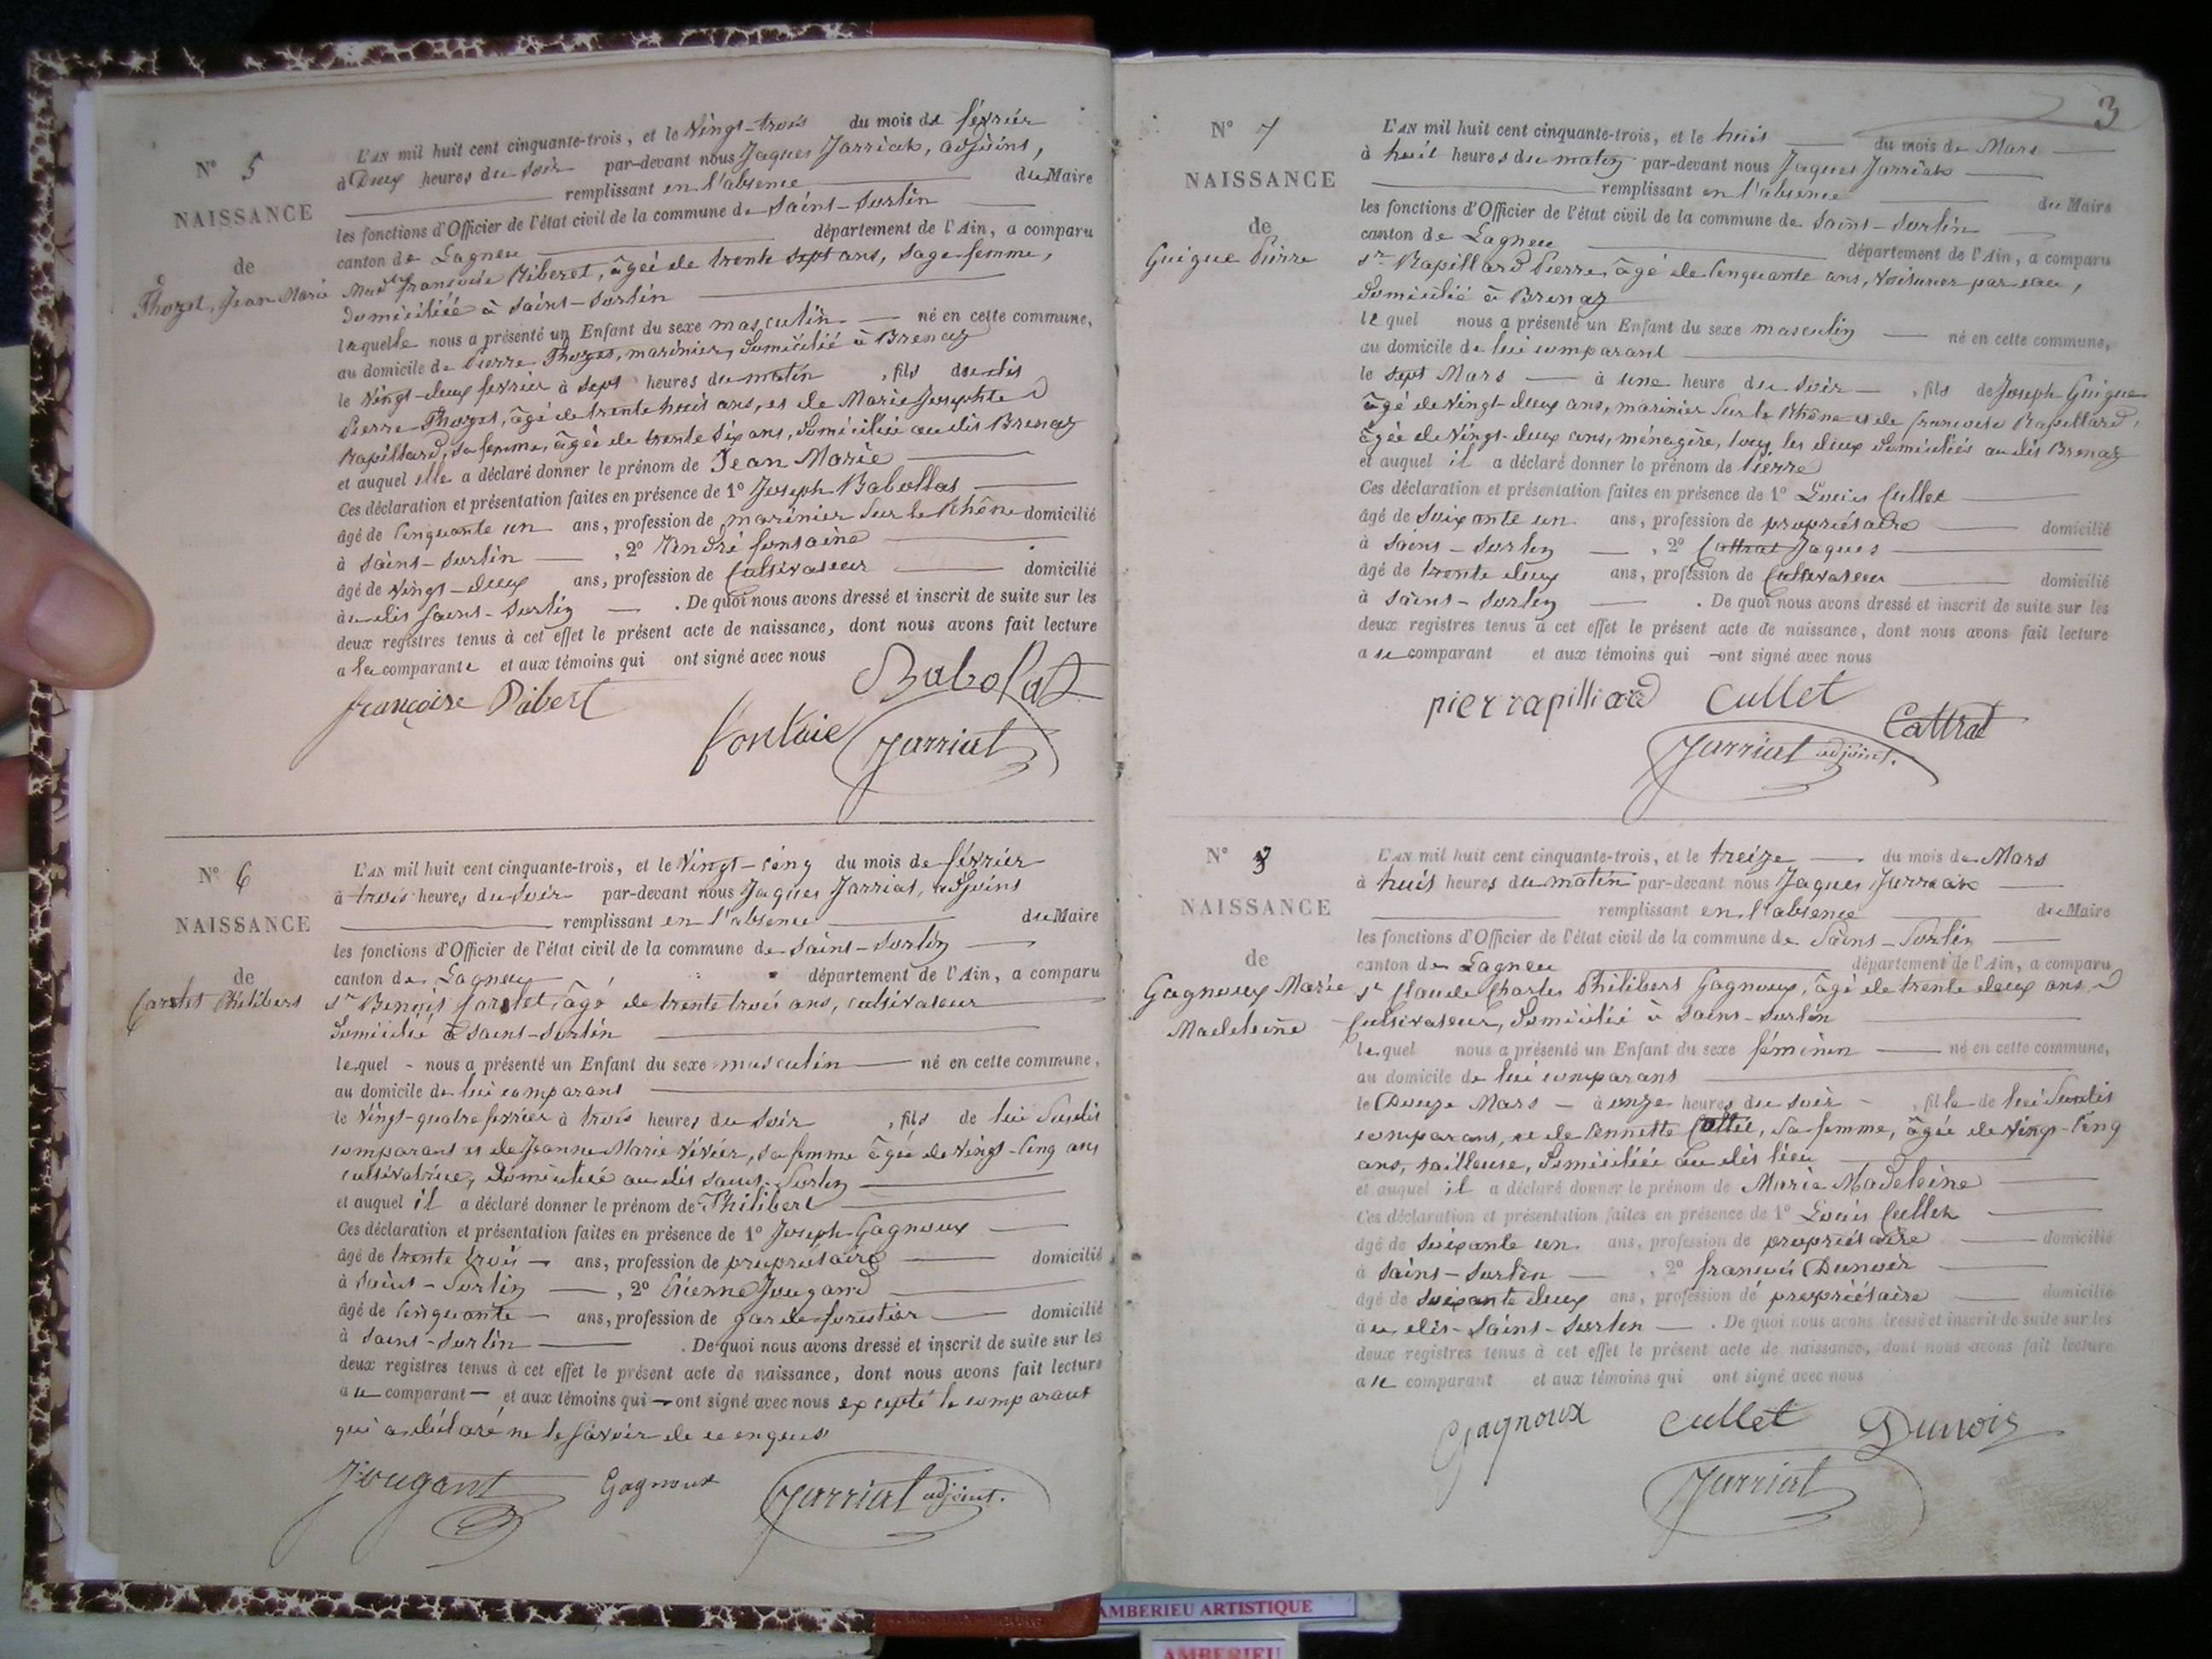 N° 5
NAISSANCE
de
Thozet, Jean Marie
L'AN mil huit cent cinquante-trois, et le Vingt-trois du mois de février
à Deux heures du Soir par-devant nous Jaques Jarriat, adjoint,
remplissant en l'absence du Maire
les fonctions d'Officier de l'état civil de la commune de Saint-Sorlin
canton de Lagneu département de l'Ain, a comparu
françoise Ribert, âgée de trente sept ans, sage femme,
domiciliée à Saint-Sorlin
laquelle nous a présenté un Enfant du sexe masculin né en cette commune,
au domicile de Pierre Thozet, marinier, domicilié à Brenaz
le Vingt-deux février à sept heures du matin , fils du dit
Pierre Thozet, âgé de trente huit ans, et de Marie Josephte
Rapillard, sa femme, âgée de trente six ans, domiciliée au dit Brenaz
et auquel elle a déclaré donner le prénom de Jean Marie
Ces déclaration et présentation faites en présence de 1° Joseph Babollat
âgé de Cinquante un ans, profession de marinier sur le Rhône domicilié
à Saint-Sorlin , 2° André fontaine
âgé de Vingt-deux ans, profession de Cultivateur domicilié
au dit Saint-Sorlin . De quoi nous avons dressé et inscrit de suite sur les
deux registres tenus à cet effet le présent acte de naissance, dont nous avons fait lecture
a la comparante et aux témoins qui ont signé avec nous
françoise Ribert Babolat
fontaie Jarriat
N° 6
NAISSANCE
de
Carstet Philibert
L'AN mil huit cent cinquante-trois, et le Vingt-cinq du mois de février
à trois heures du Soir par-devant nous Jaques Jarriat, adjoint
remplissant en l'absence du Maire
les fonctions d'Officier de l'état civil de la commune de Saint-Sorlin
canton de Lagneu département de l'Ain, a comparu
Sr Benoit âgé de trente trois ans, cultivateur
domicilié à Saint-Sorlin
lequel nous a présenté un Enfant du sexe masculin né en cette commune,
au domicile de lui comparant
le Vingt-quatre février à trois heures du Soir , fils de lui Susdit
comparant et de Jeanne Marie Vivier, sa femme âgée de Vingt-Cinq ans
cultivatrice, domiciliée au dit Saint-Sorlin
et auquel il a déclaré donner le prénom de Philibert
Ces déclaration et présentation faites en présence de 1° Joseph Gagnoux
âgé de trente trois ans, profession de propriétaire domicilié
à Saint-Sorlin , 2° Etienne Jougand
âgé de Cinquante ans, profession de garde forestier domicilié
à Saint-Sorlin . De quoi nous avons dressé et inscrit de suite sur les
deux registres tenus à cet effet le présent acte de naissance, dont nous avons fait lecture
au comparant et aux témoins qui ont signé avec nous excepté le comparant
qui a déclaré ne le savoir de ce enquis
Jougant Gagnoux Jarriat adjoint.
3
N° 7
NAISSANCE
de
Guigue Pierre
L'AN mil huit cent cinquante-trois, et le huit du mois de Mars
à huit heures du matin par-devant nous Jaques Jarriat
remplissant en l'absence du Maire
les fonctions d'Officier de l'état civil de la commune de Saint-Sorlin
canton de Lagneu département de l'Ain, a comparu
Sr Rapillard Pierre, âgé de Cinquante ans, Voiturier par eau,
domicilié à Brenaz
lequel nous a présenté un Enfant du sexe masculin né en cette commune,
au domicile de lui comparant
le sept Mars à une heure du soir , fils de Joseph Guigue
âgé de Vingt-deux ans, marinier sur le Rhône et de françoise Rapillard,
âgée de Vingt-deux ans, ménagère, tous les deux domiciliés au dit Brenaz
et auquel il a déclaré donner le prénom de Pierre
Ces déclaration et présentation faites en présence de 1° Louis Cullet
âgé de Soixante un ans, profession de propriétaire domicilié
à Saint-Sorlin , 2° Cattrat Jaques
âgé de trente deux ans, profession de Cultivateur domicilié
à Saint-Sorlin . De quoi nous avons dressé et inscrit de suite sur les
deux registres tenus à cet effet le présent acte de naissance, dont nous avons fait lecture
a le comparant et aux témoins qui ont signé avec nous
pier rapilliard Cullet Cattrat
Jarriat adjoint.
N° 8
NAISSANCE
de
Gagnoux Marie
Madeleine
L'AN mil huit cent cinquante-trois, et le treize du mois de Mars
à huit heures du matin par-devant nous Jaques Jarriat
remplissant en l'absence du Maire
les fonctions d'Officier de l'état civil de la commune de Saint-Sorlin
canton de Lagneu département de l'Ain, a comparu
Sr Claude Charles Philibert Gagnoux, âgé de trente deux ans
Cultivateur, domicilié à Saint-Sorlin
lequel nous a présenté un Enfant du sexe féminin né en cette commune,
au domicile de lui comparant
le Douze Mars à onze heures du soir , fille de lui Susdit
comparant, et de Cennette sa femme, âgée de Vingt-Cinq
ans, tailleuse, domiciliée au dit lieu
et auquel il a déclaré donner le prénom de Marie Madeleine
Ces déclaration et présentation faites en présence de 1° Louis Cullet
âgé de Soixante un ans, profession de propriétaire domicilié
à Saint-Sorlin , 2° françois Dunoir
âgé de Soixante deux ans, profession de propriétaire domicilié
au dit-Saint-Sorlin . De quoi nous avons dressé et inscrit de suite sur les
deux registres tenus à cet effet le présent acte de naissance, dont nous avons fait lecture
a le comparant et aux témoins qui ont signé avec nous
Gagnoux Cullet Dunoir
Jarriat
AMBERIEU ARTISTIQUE
AMBERIEU